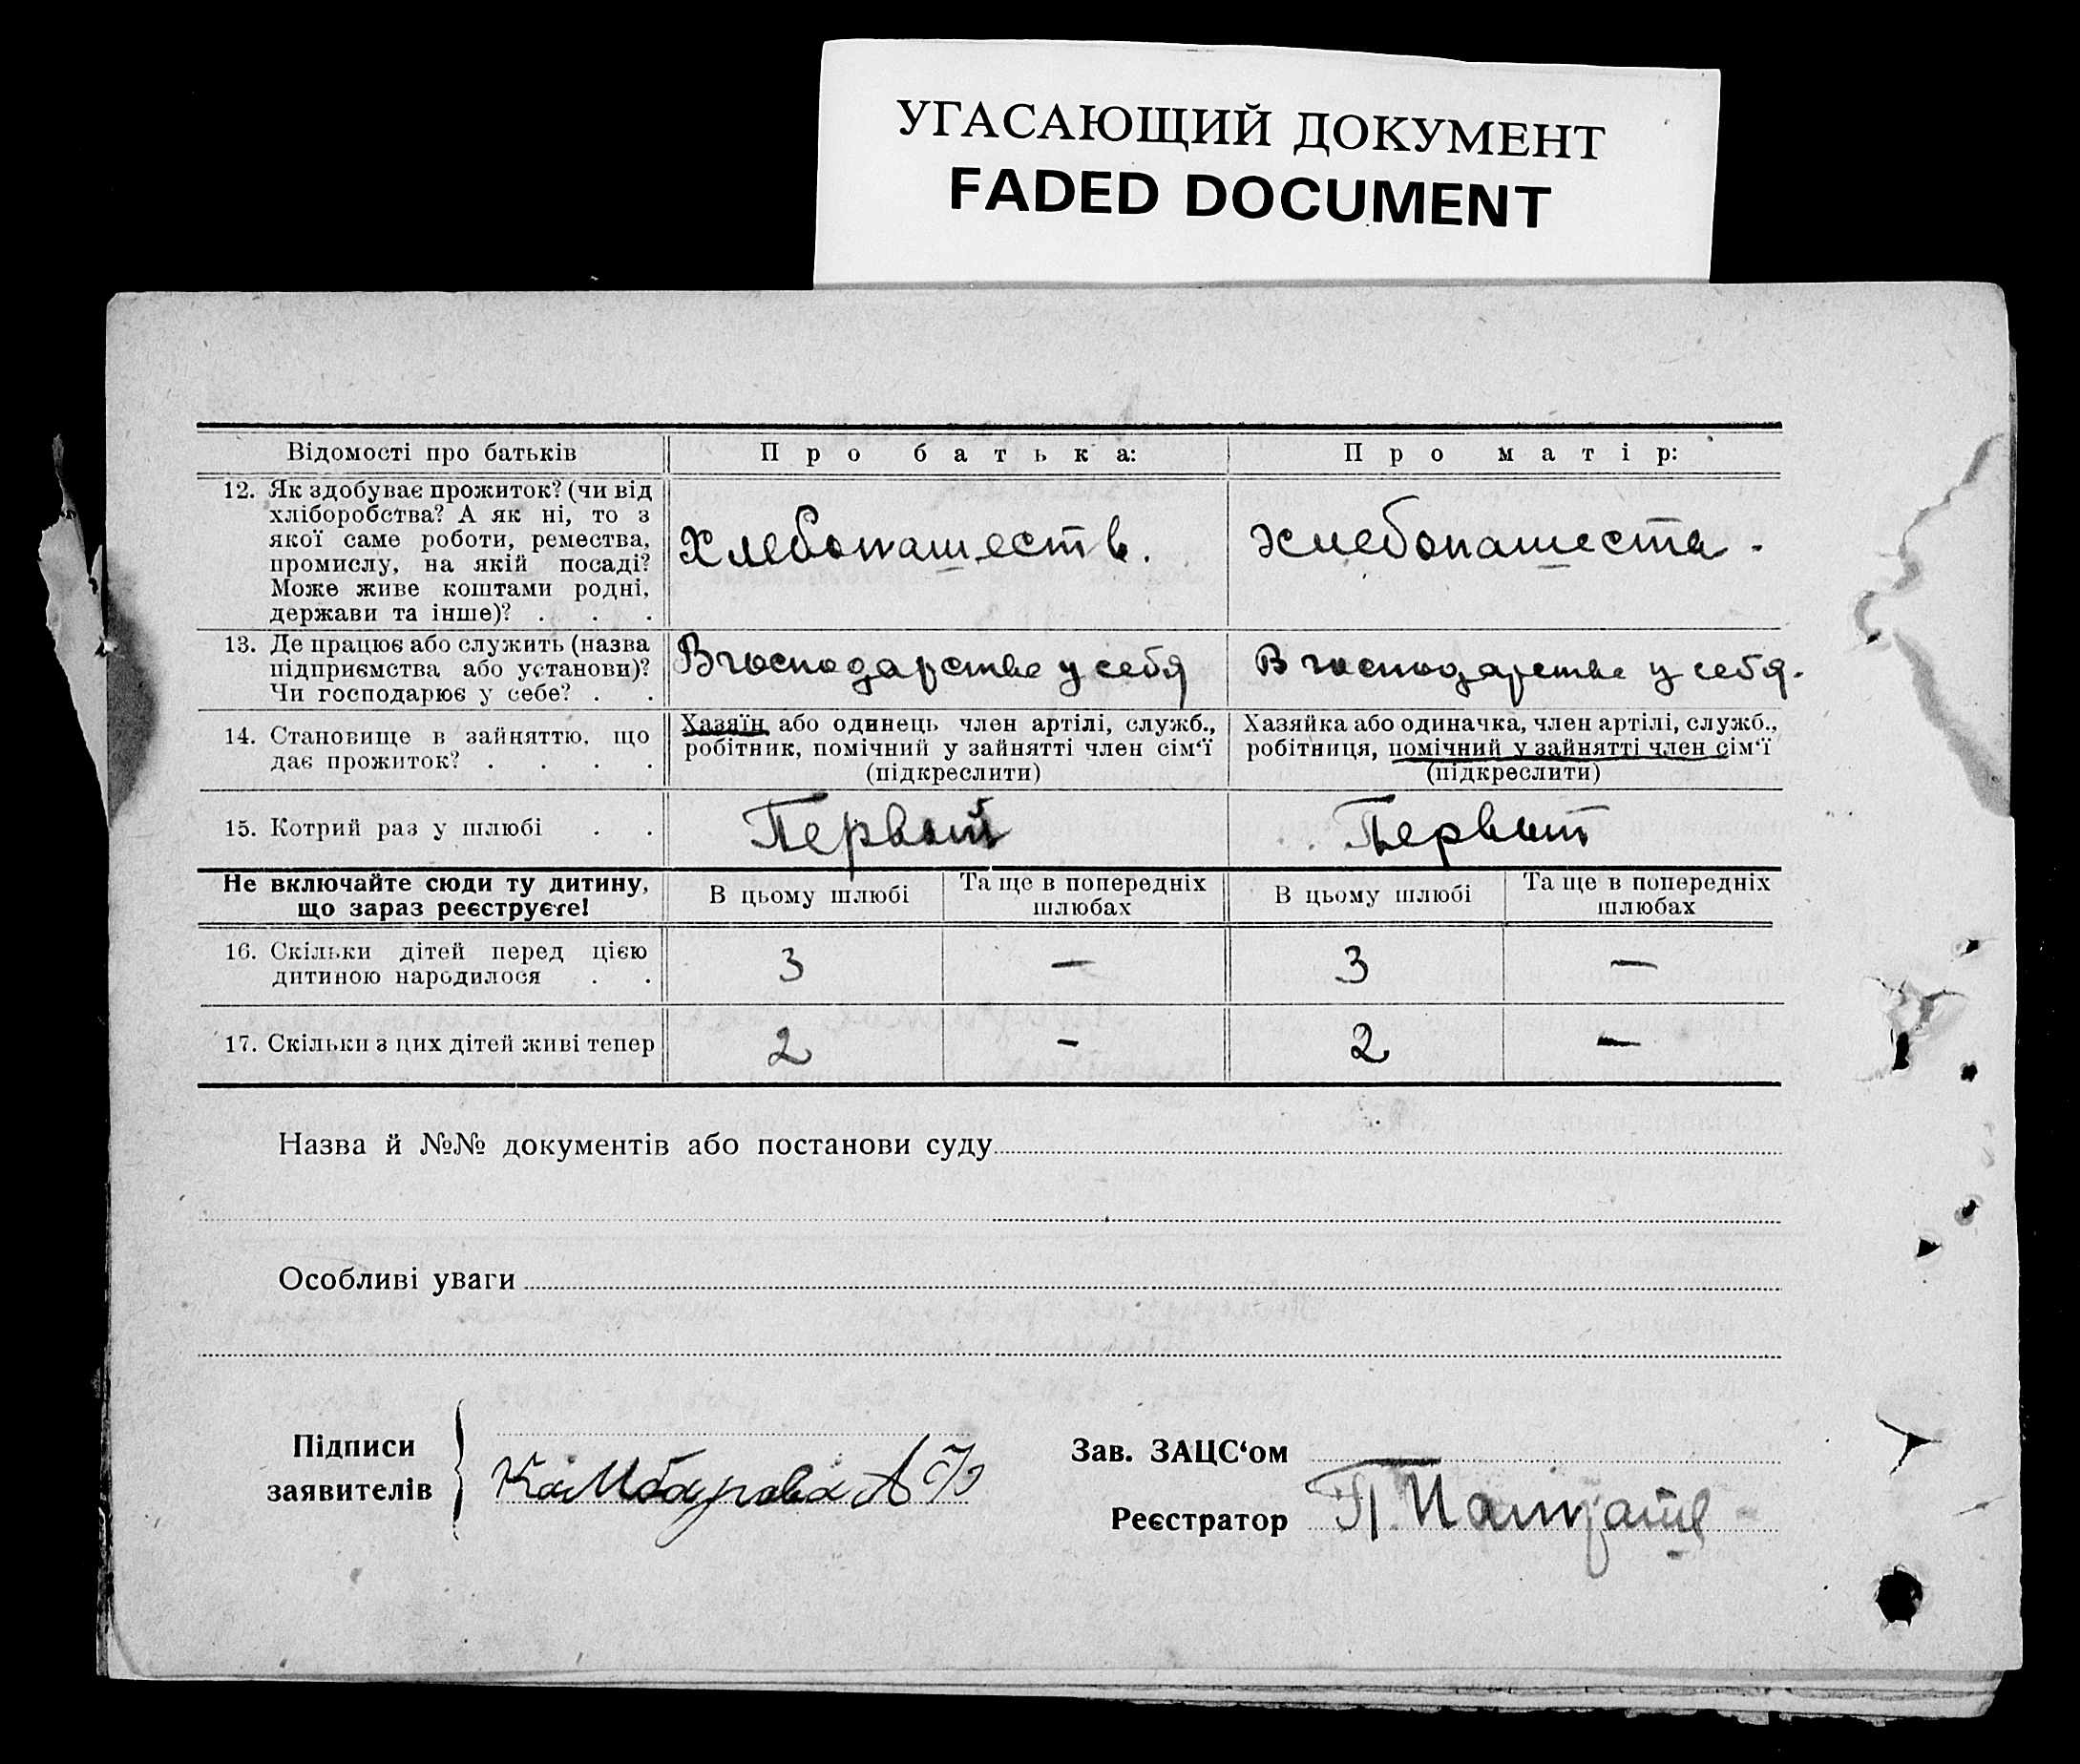 УГАСАЮЩИЙ ДОКУМЕНТ
FADED DOCUMENT
Відомості про батьків
Про батька:
Про матір:
12. Як здобуває прожиток? (чи від
хліборобства? А як ні, то з
якої саме роботи, ремества,
промислу, на якій посаді?
Може живе коштами родні,
держави та інше)? . . .
Хлебопашеств.
Хлебопашеста.
13. Де працює або служить (назва
підприємства або установи)?
Чи господарює у себе? . .
В господарстве у себя
В господарстве у себя.
14. Становище в зайняттю, що
дає прожиток? . . . .
Хазяїн або одинець член артілі, служб.,
робітник, помічний у зайнятті член сім'ї
(підкреслити)
Хазяйка або одиначка, член артілі, служб.,
робітниця, помічний у зайнятті член сім'ї
(підкреслити)
15. Котрий раз у шлюбі . .
Первый
Первый
Не включайте сюди ту дитину,
що зараз реєструєте!
В цьому шлюбі
Та ще в попередніх
шлюбах
В цьому шлюбі
Та ще в попередніх
шлюбах
16. Скільки дітей перед цією
дитиною народилося . .
3
—
3
—
17. Скільки з цих дітей живі тепер
2
-
2
—
Назва й №№ документів або постанови суду
Особливі уваги
Підписи
заявителів
Камбарова А
Зав. ЗАЦС'ом
Реєстратор